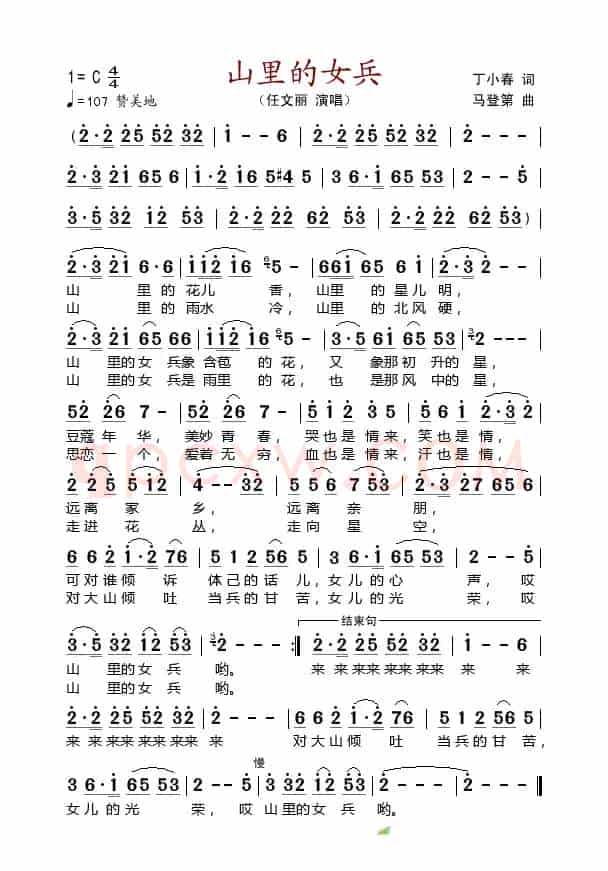 山里的女兵
1= C 4/4
♩=107 赞美地
（任文丽 演唱）
丁小春 词
马登第 曲
( 2·2 25 52 32 | 1 - - 6 | 2·2 25 52 32 |
2·3 21 65 6 | 1·2 16 5#4 5 | 3 6·1 65 53 | 2 - - - |
3·5 32 12 53 | 2·2 22 62 53 | 2·2 22 62 53 ) |
2·3 21 6·6 | 112 16 5 - | 661 65 63 | 2·3 2 - - |
山 里的花儿 香， 山里 的星儿明，
山 里的雨水 冷， 山里 的北风硬，
2·3 21 65 66 | 112 16 5 - | 3 6·1 65 53 | 2 - - - |
山 里的女兵象含苞 的花， 又 象那初升的星，
山 里的女兵是雨里 的花， 也 是那风中的星，
52 26 7 - | 52 26 7 - | 5 1 61 2 | 5 61 2·3 |
豆蔻年 华， 美妙青春， 哭也是情来，笑也是情，
思恋一 个， 爱着无穷， 血也是情来，汗也是情，
2 25 53 12 | 4 - - 32 | 1 35 65 3 | 5 - - - |
远离 家 乡， 远离 亲 朋，
走进 花 丛， 走向 星 空，
6 6 62 1·2 76 | 5 1 2 2056 5 | 3 6·1 65 53 | 2 - - 2 |
可对谁倾 诉 体己的话 儿，女儿的心 声，哎
对大山倾 吐 当兵的甘 苦，女儿的光 荣，哎
3·5 32 12 53 | 2 - - - :|| 2·2 25 52 32 | 1 - - 6 |
结束句
山 里的女兵 哟。 来 来来来来来来来 来 来
山 里的女兵 哟。
2·2 25 52 32 | 2 - - - | 6 6 62 1·2 76 | 5 1 2 2056 5 |
来 来来来来来来来 来 对大山倾 吐 当兵的甘 苦，
慢
3 6·1 65 53 | 2 - - 5 | 3 32 12 53 | 2 - - - | 2 - - - ||
女儿的光 荣， 哎 山里的女 兵 哟。
pcxw.COM